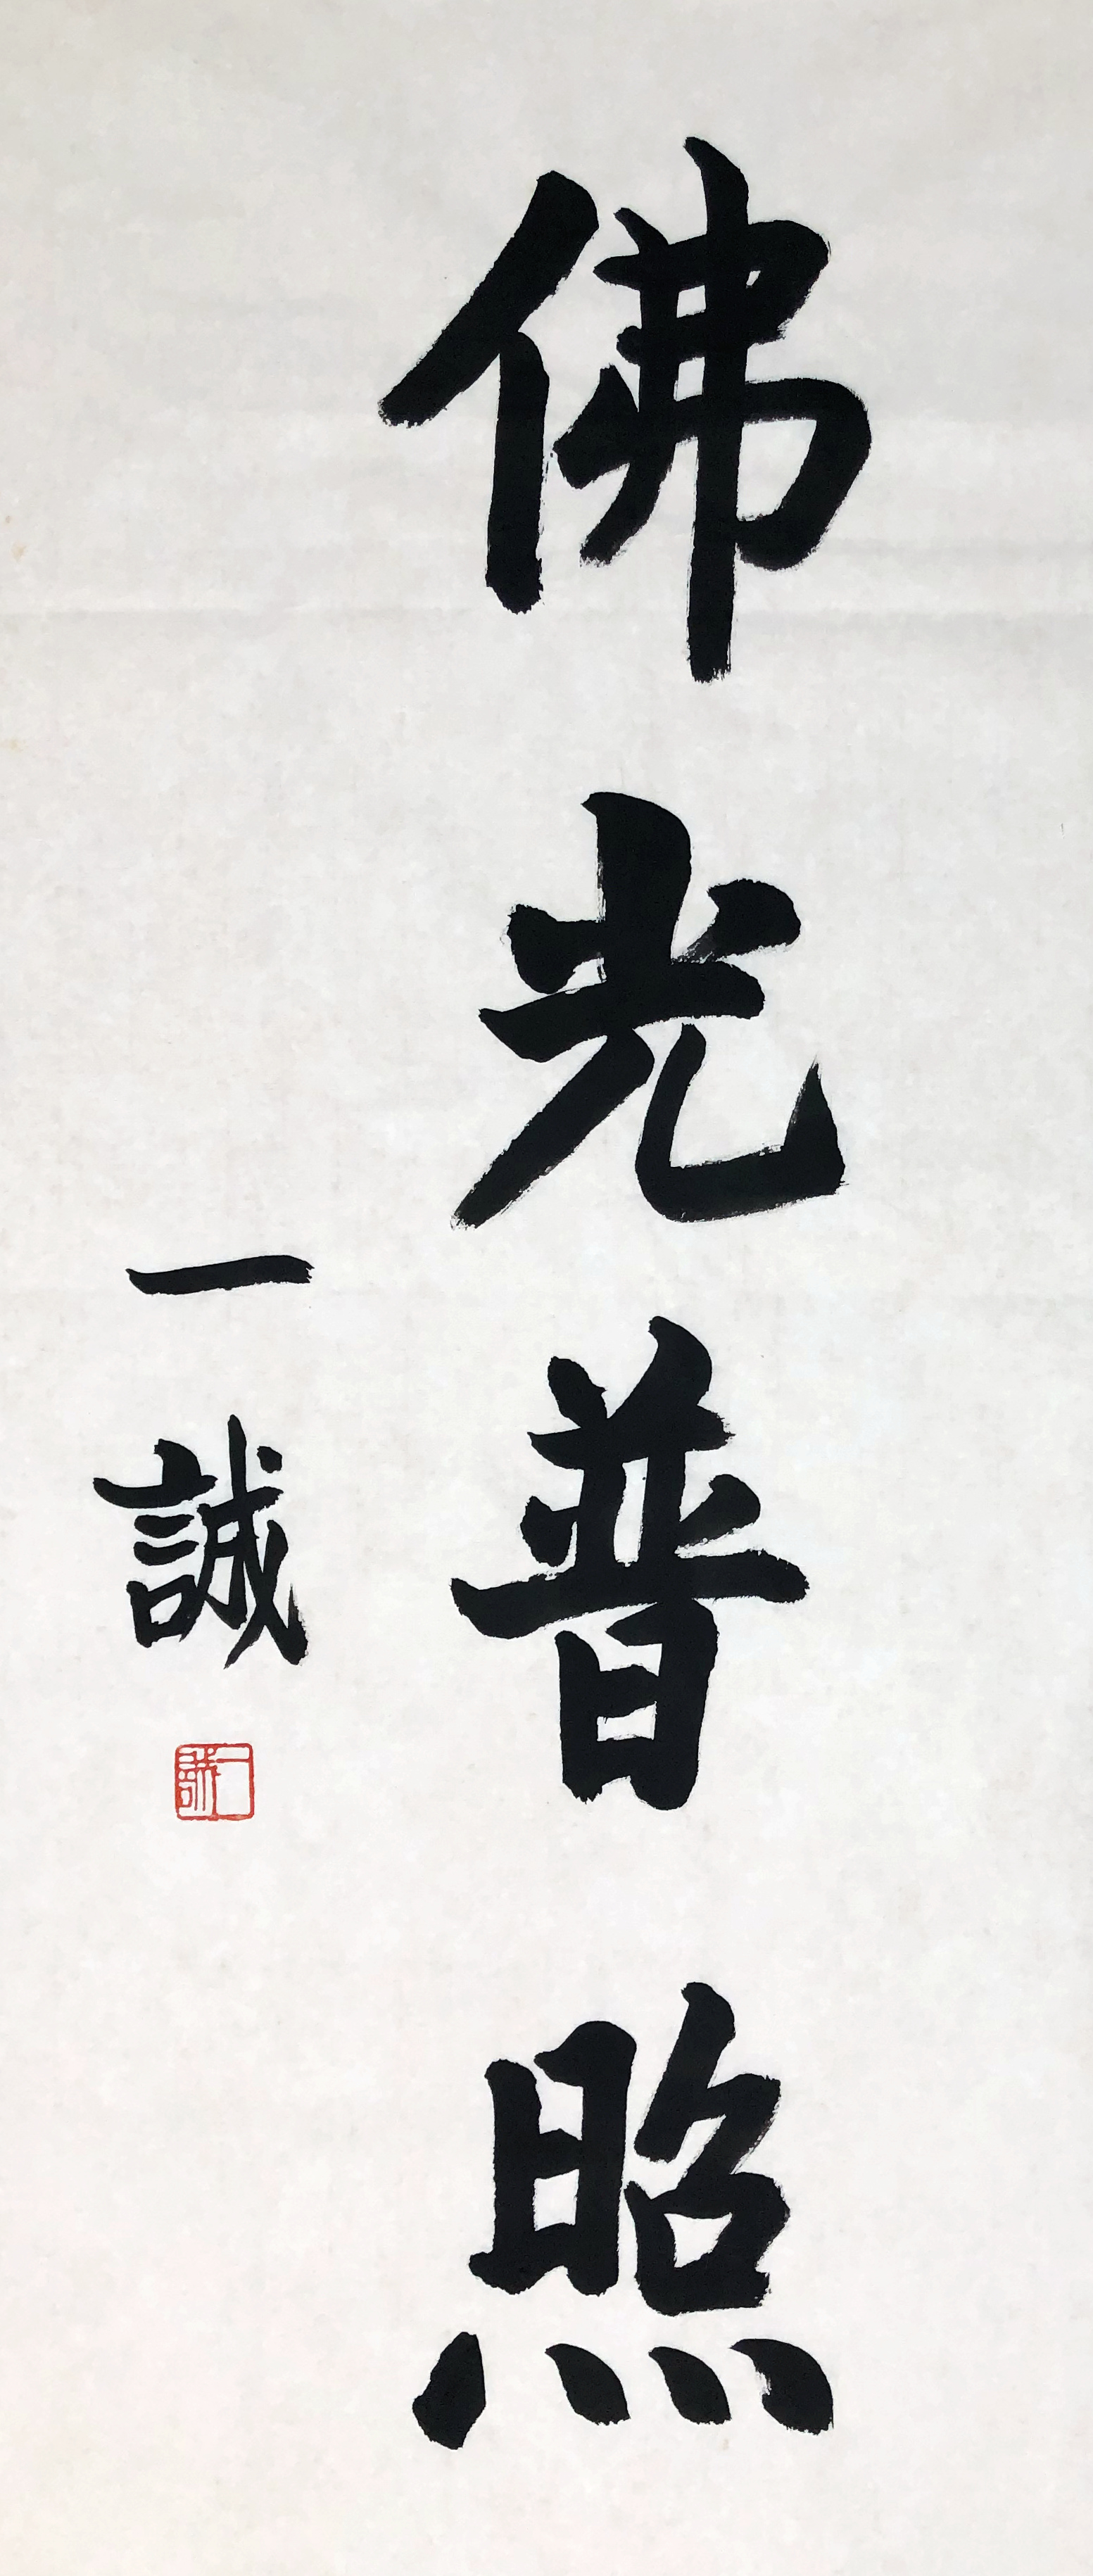 佛光普照
一誠
一誠